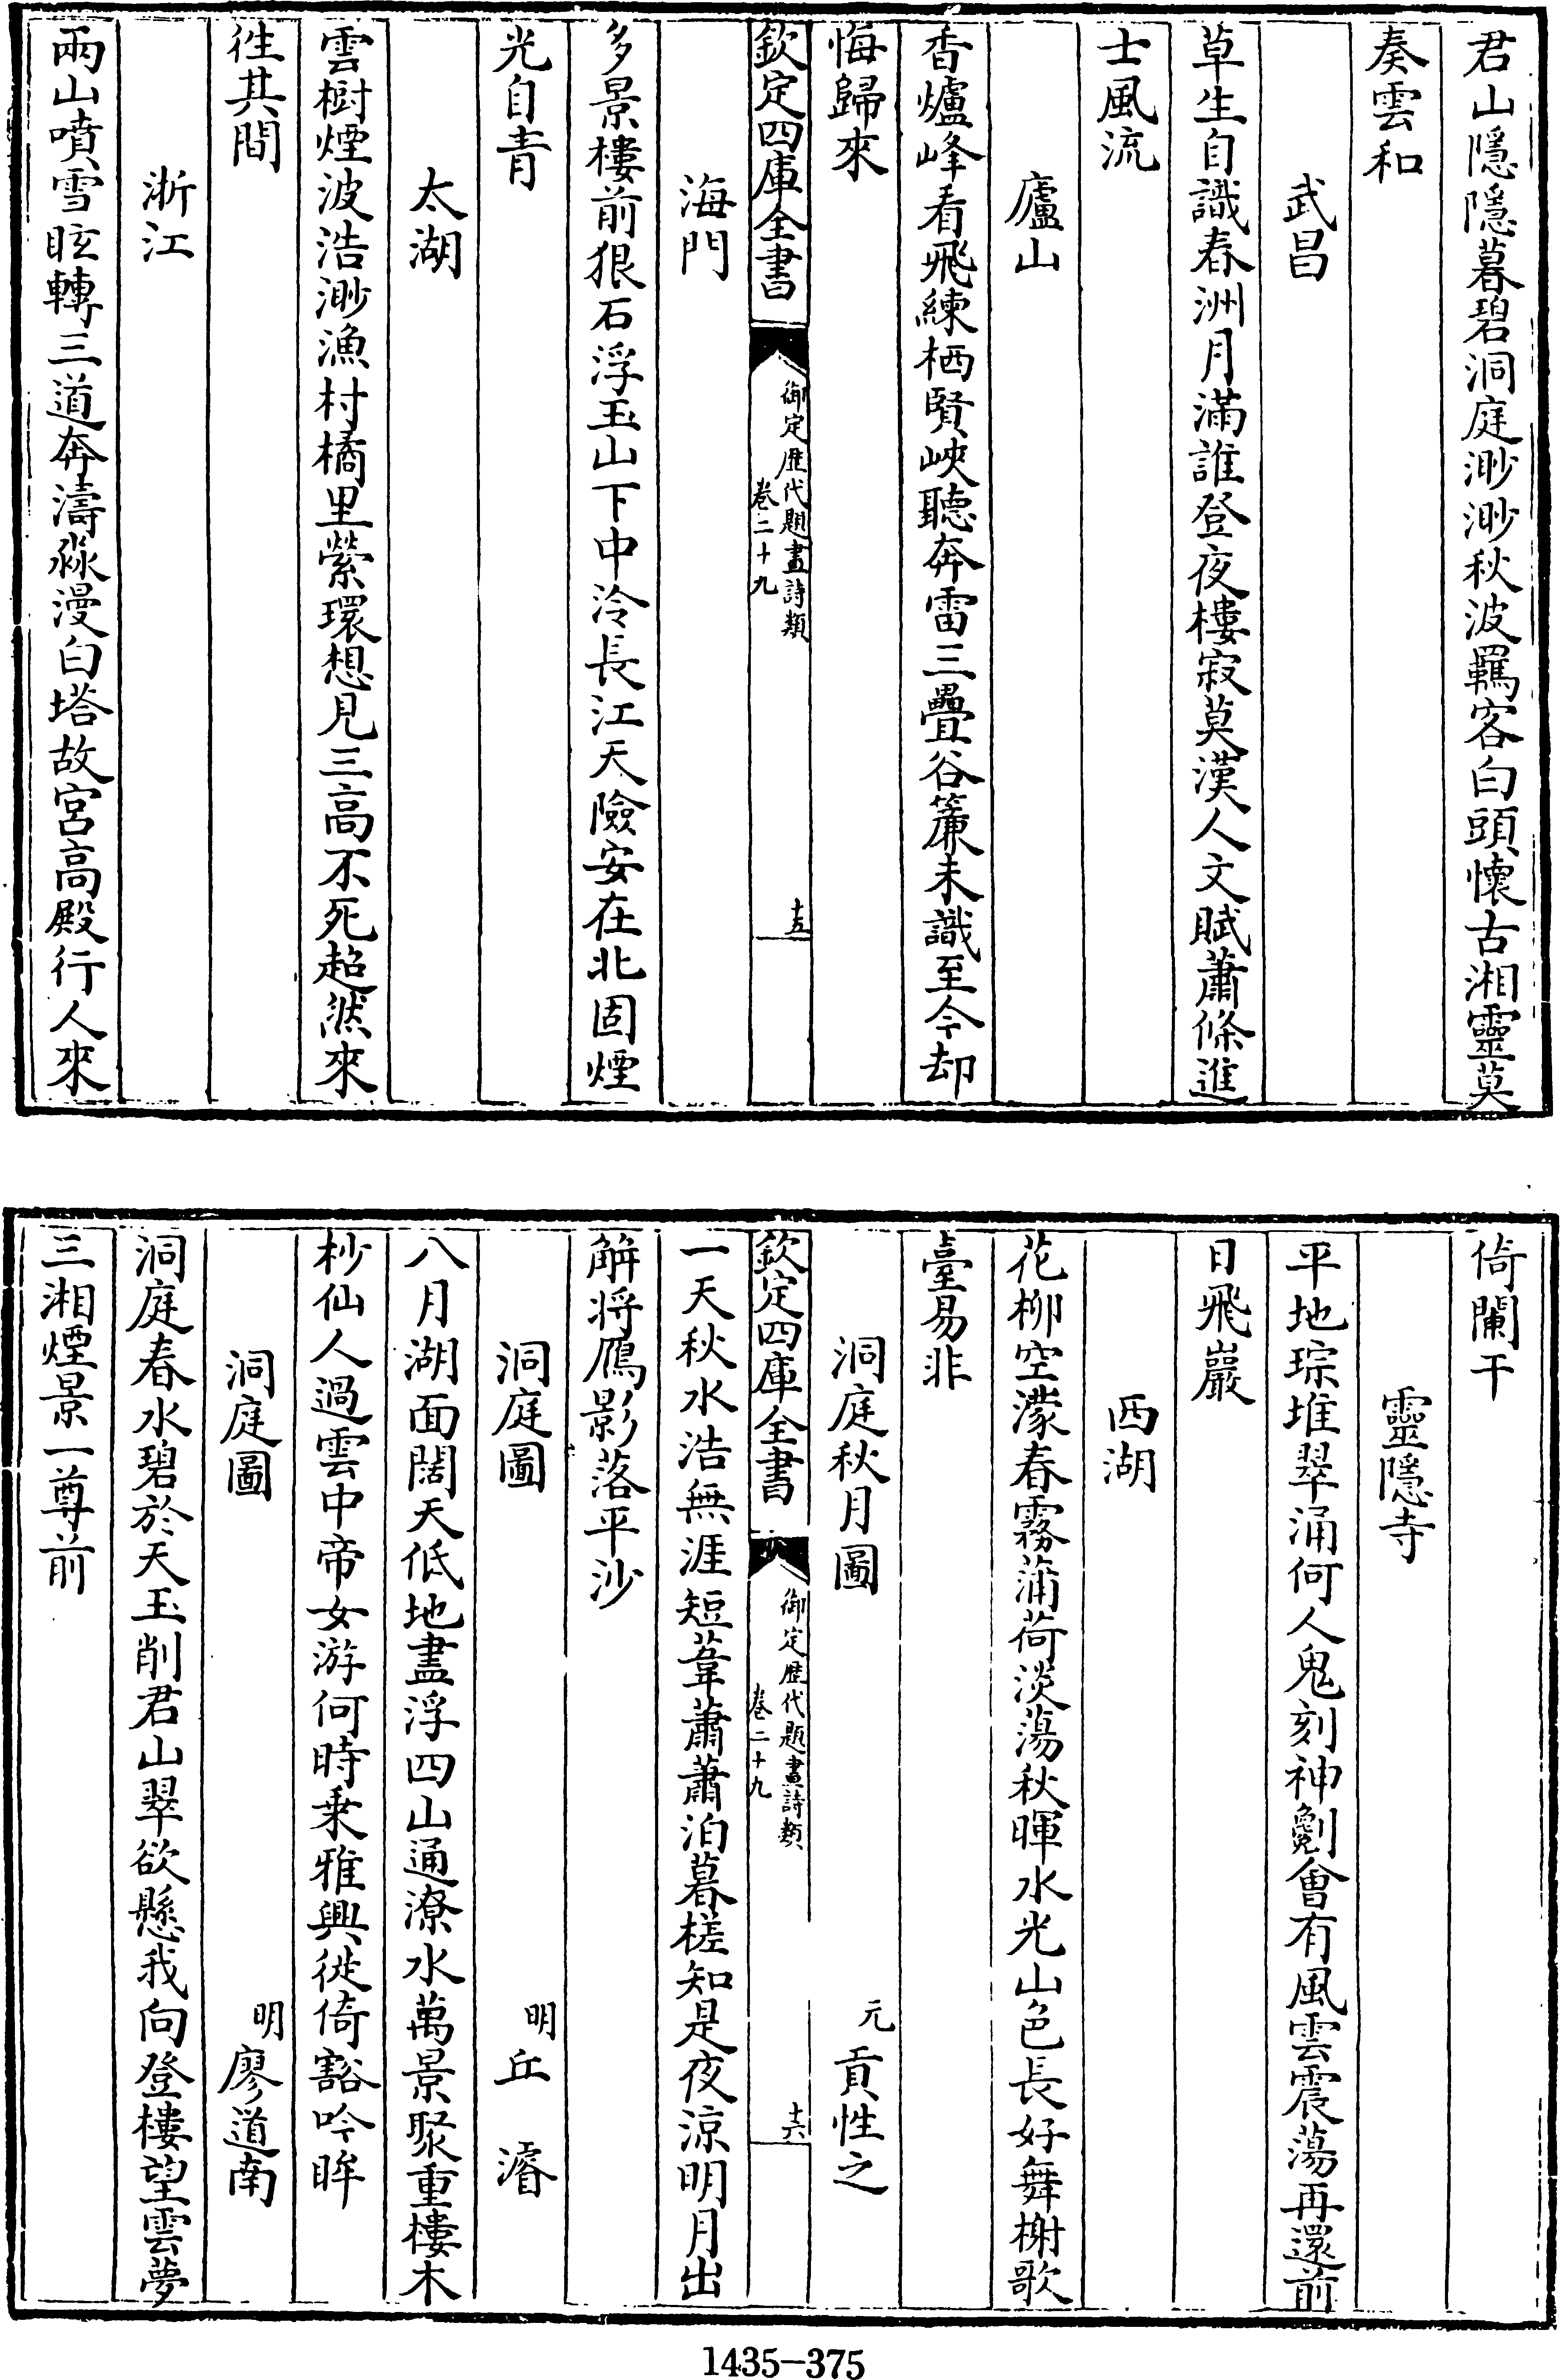 君山隱隱暮碧洞庭渺渺秋波羈客白頭懷古湘靈莫
奏雲和
武昌
草生自識春洲月滿誰登夜樓寂莫漢人文賦蕭條進
士風流
廬山
香爐峰看飛練栖賢峽聽奔雷三疊谷簾未識至今却
悔歸來
欽定四庫全書
御定歷代題畫詩類
卷二十九
十五
海門
多景樓前狠石浮玉山下中泠長江天險安在北固煙
光自青
太湖
雲樹煙波浩渺漁村橘里縈環想見三高不死超然來
徃其間
浙江
兩山噴雪眩轉三道奔濤淼漫白塔故宮高殿行人來
倚闌干
靈隱寺
平地琮堆翠涌何人鬼刻神劖會有風雲震蕩再還前
日飛巖
西湖
花柳空濛春霧蒲荷淡蕩秋暉水光山色長好舞榭歌
臺易非
洞庭秋月圖
元 貢性之
欽定四庫全書
御定歷代題畫詩類
卷二十九
十六
一天秋水浩無涯短葦蕭蕭泊暮槎知是夜涼明月出
觧將鴈影落平沙
洞庭圖
明 丘 濬
八月湖面闊天低地盡浮四山通潦水萬景聚重樓木
杪仙人過雲中帝女游何時乗雅興徙倚豁吟眸
洞庭圖
明 廖道南
洞庭春水碧於天玉削君山翠欲懸我向登樓望雲夢
三湘煙景一尊前
1435-375